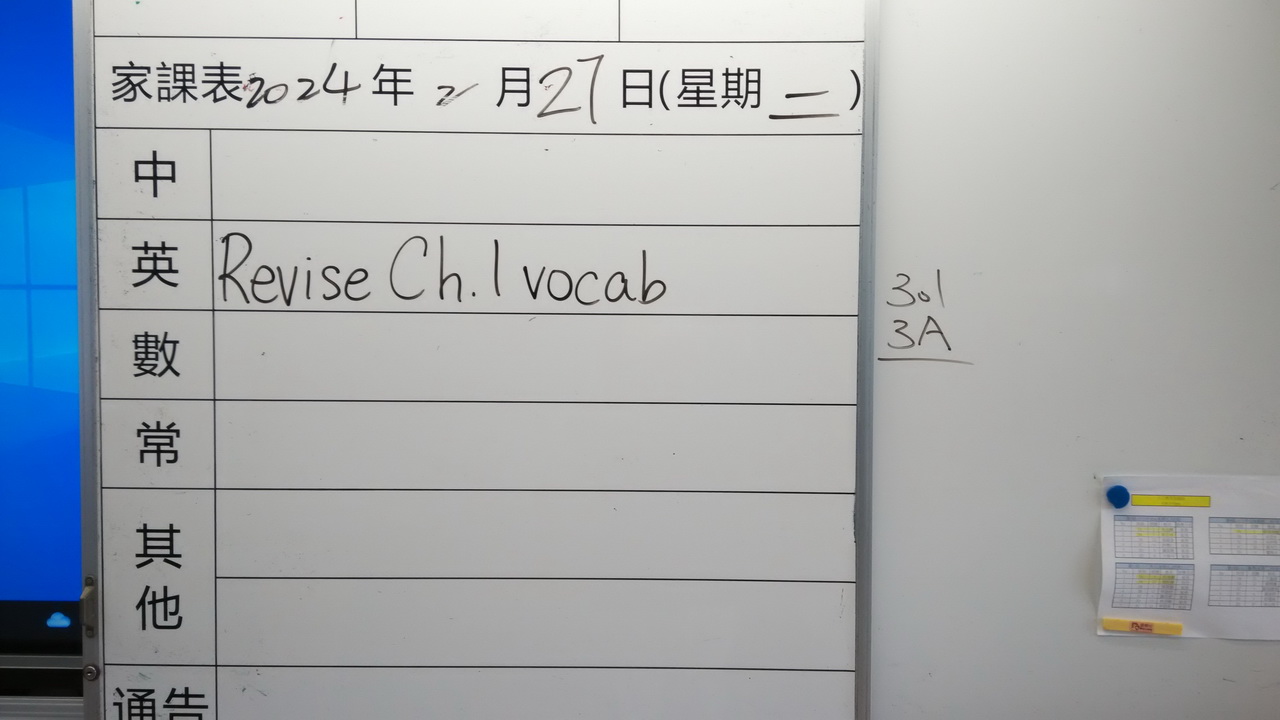 家課表2024年2月27日(星期二)
中
英 Revise Ch.1 vocab
數
常
其他
通告
301
3A